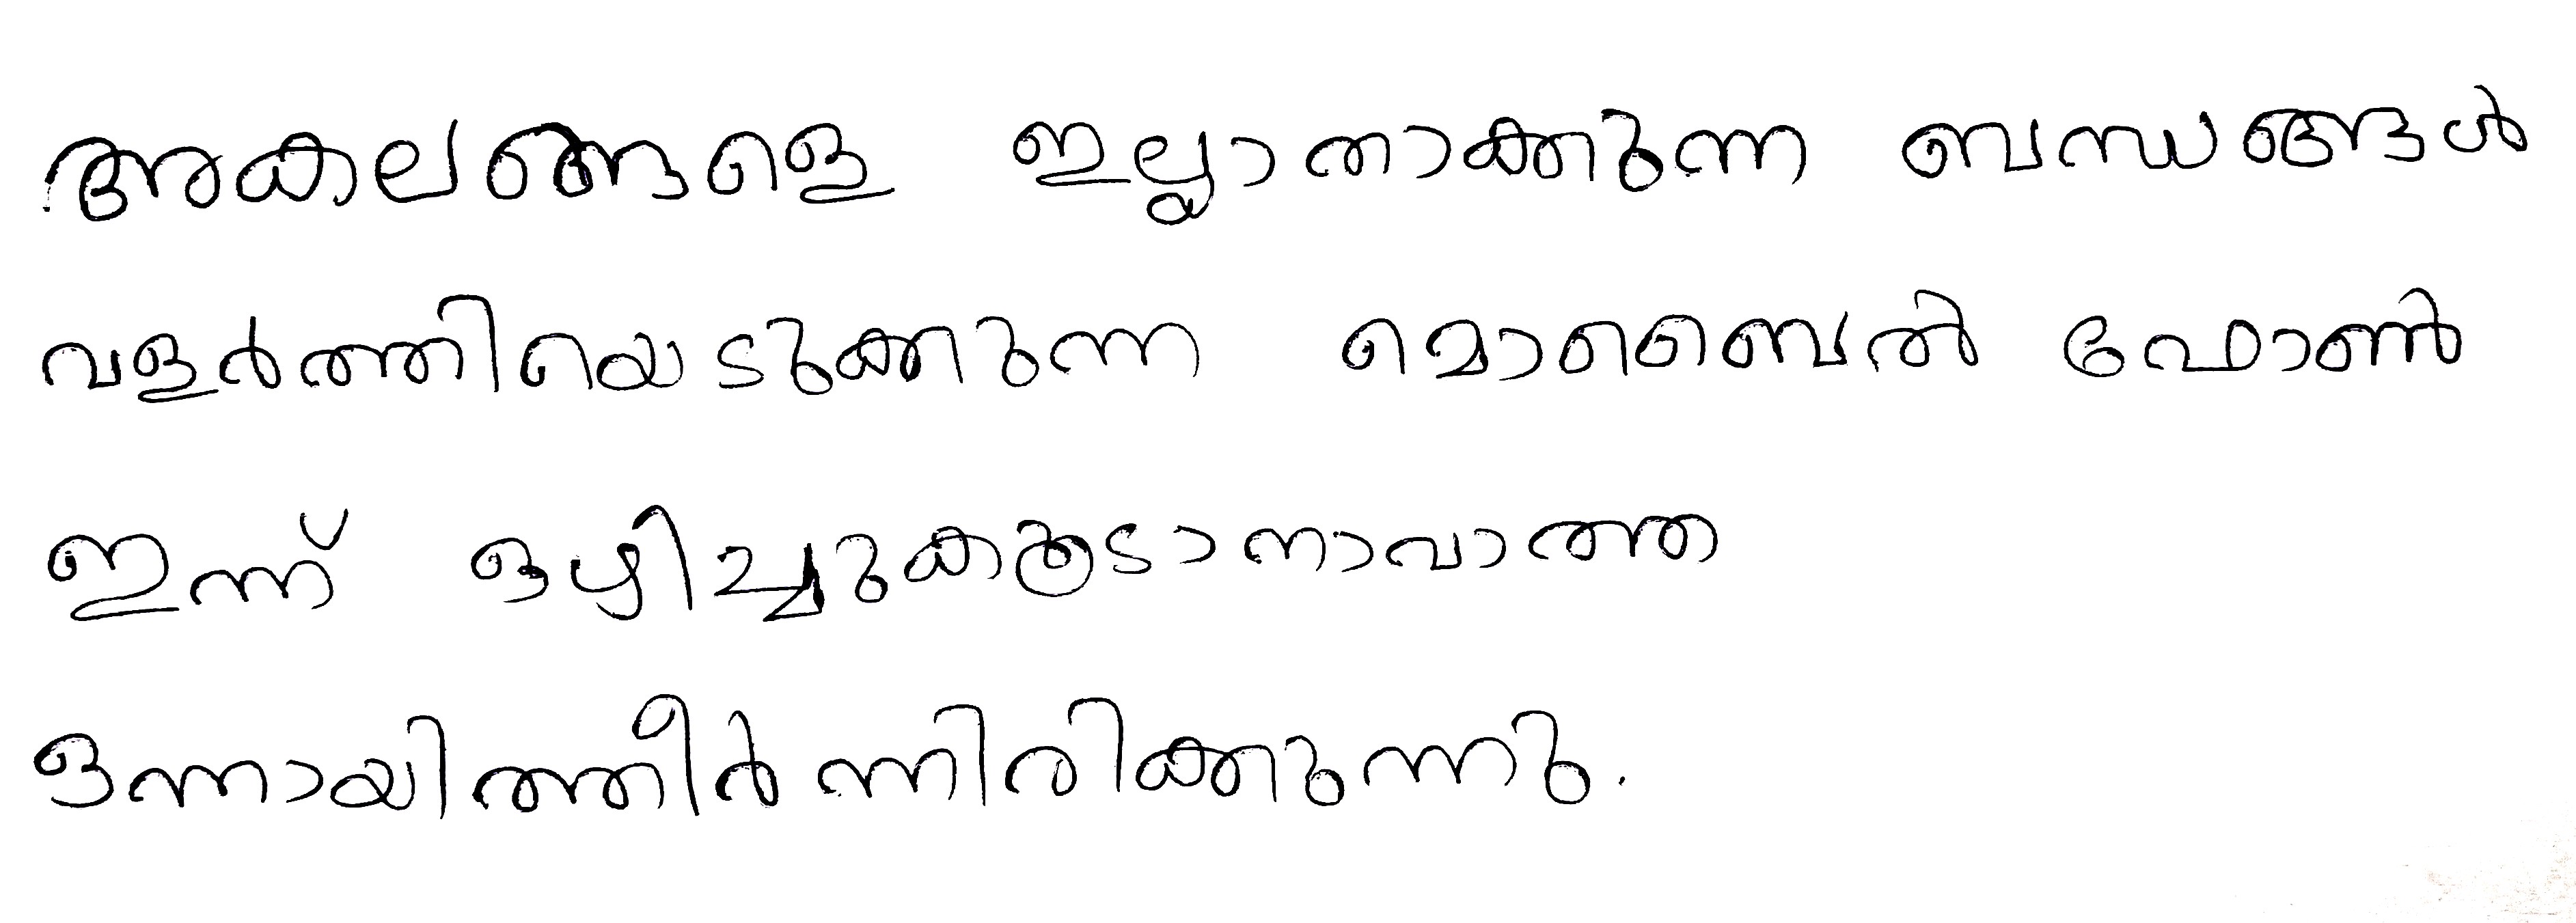 അകലങ്ങളെ ഇല്ലാതാക്കുന്ന ബന്ധങ്ങൾ
വളർത്തിയെടുക്കുന്ന മൊബൈൽ ഫോൺ
ഇന്ന് ഒഴിച്ചുകൂടാനാവാത്ത
ഒന്നായിത്തീർന്നിരിക്കുന്നു.